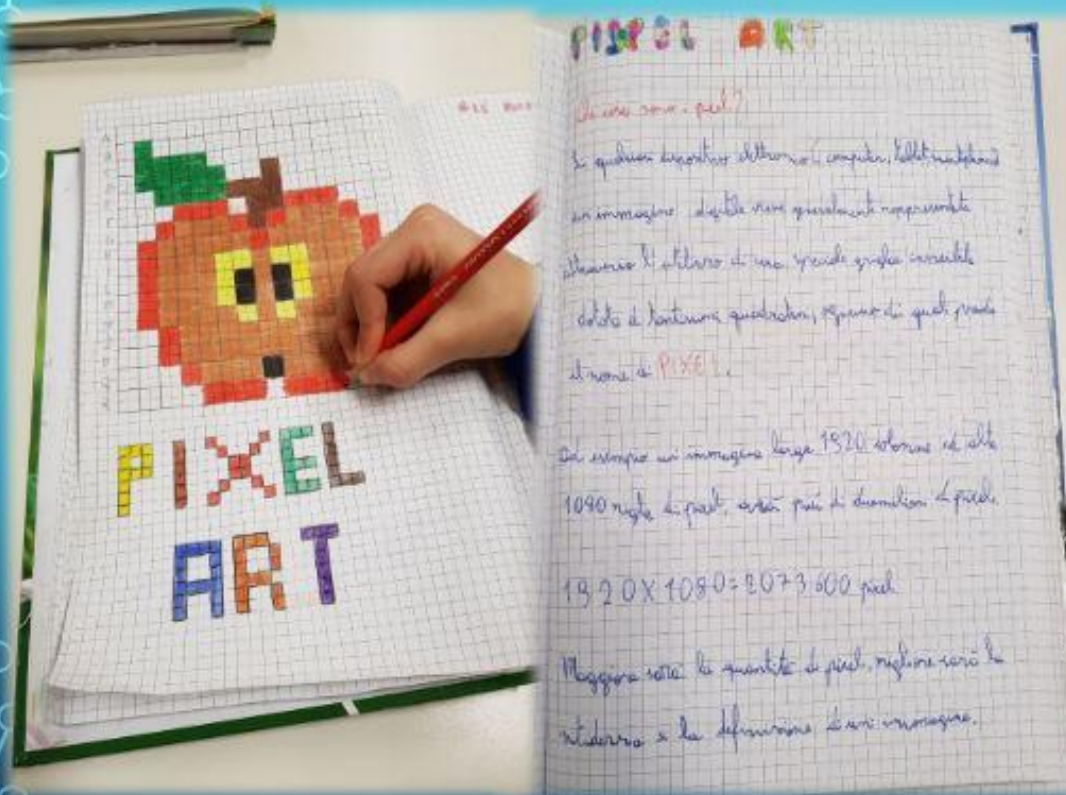 PIXEL
ART
PIXEL ART
Che cosa sono i pixel?
In qualsiasi dispositivo elettronico computer, tablet, smartphone
un'immagine digitale viene generalmente rappresentata
attraverso l'utilizzo di una grande griglia invisibile
dotata di tantissimi quadratini, ognuno di questi prende
il nome di PIXEL.
Ad esempio un immagine larga 1920 colonne ed alta
1080 righe di pixel, avrà più di duemilioni di pixel.
1920X1080=2073600 pixel
Maggiore sarà la quantità di pixel, migliore sarà la
nitidezza e la definizione di un immagine.